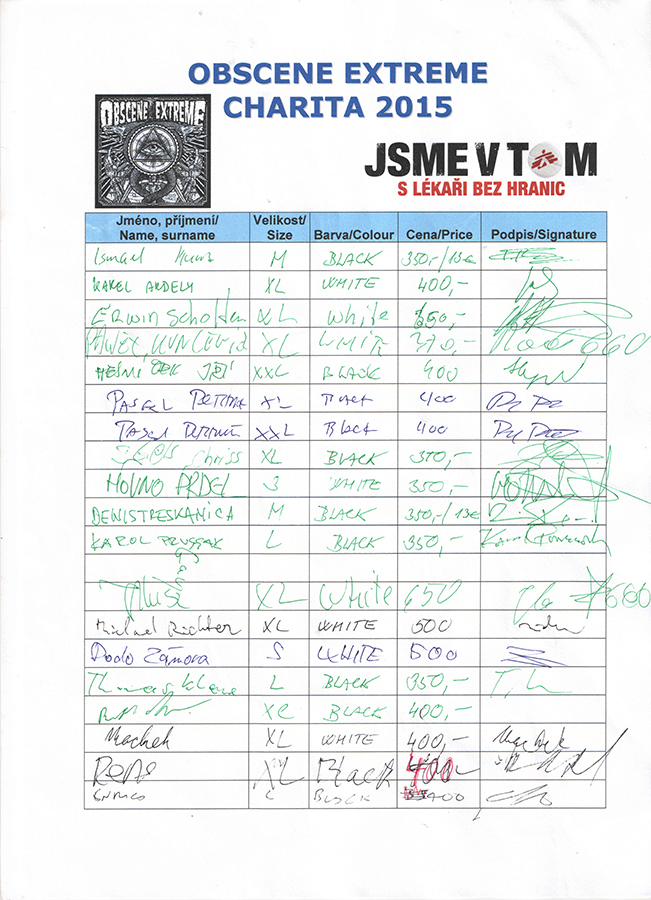 OBSCENE EXTREME
CHARITA 2015
OBSCENE EXTREME
JSME V TOM
S LÉKAŘI BEZ HRANIC
Jméno, příjmení/ Name, surname Velikost/ Size Barva/Colour Cena/Price Podpis/Signature
Ismael M BLACK 350,-/13€
KAREL ARDELY XL WHITE 400,-
ERWIN Scholten XL White 350,-
XL WHITE 370,- 660
XXL BLACK 400
PASCAL XL Black 400
PASCAL XXL Black 400
Chriss XL BLACK 350,-
HOVNO ARDEL S WHITE 350,-
DENISTRESKANICA M BLACK 350,-/13€
KAROL PRUSSAK L BLACK 350,-
XL White 650 660
Michael Richter XL WHITE 500
Dodo Zámova S WHITE 500
Thomas L BLACK 350,-
XL BLACK 400,-
Machek XL WHITE 400,- Machek
XL Black 400,-
L BLACK 400